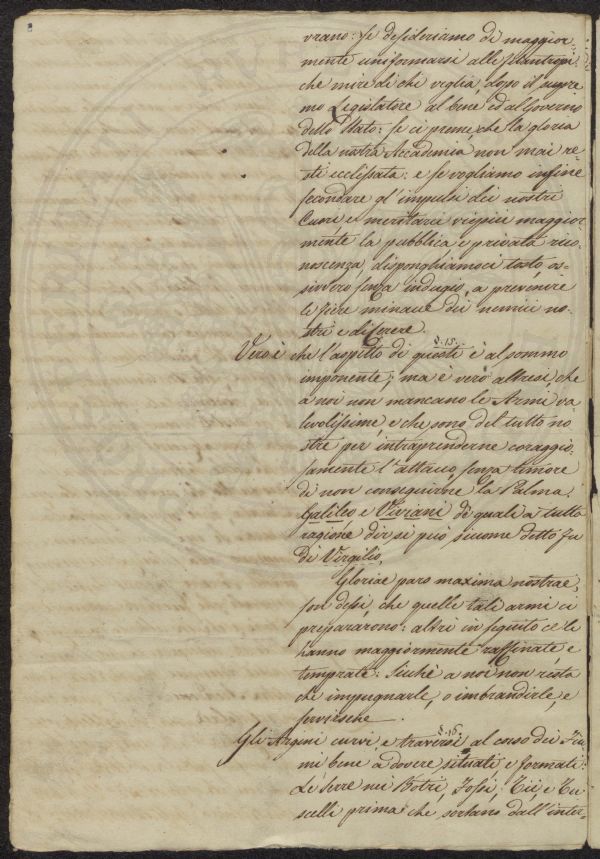 vrano: se desideriamo di maggior=
mente uniformarsi alle filantropi=
che mire di chi veglia, dopo il supre
mo Legislatore al bene ed al Governo
dello Stato: Se ci preme, che la gloria
della nostra Accademia non mai re
sti ecclissata: e se vogliamo infine
secondare gl'impulsi dei nostri
Cuori e meritarci viepiù maggior=
mente la pubblica, e privata rico=
noscenza, disponghiamoci tosto, os=
sivvero senza indugio, a prevenire
le fiere minacce dei nemici no=
stri e di Cerere.
§. 15.
Vero è che l'aspetto di questi è al sommo
imponente; ma è vero altresì che
a noi non mancano le Armi va
levolissime, e che sono del tutto no
stre per intraprenderne coraggio=
samente l'attacco, senza timore
di non conseguirne la Palma.
Galileo e Viviani de quali a tutto
ragione dir si può, siccome detto fu
di Virgilio,
Gloriae pars maxima nostrae,
son dessi, che quelle tali armi ci
prepararono: altri in seguito ce le
hanno maggiormente raffinate, e
temprate: Sicchè a noi non resta
che impugnarle, o imbrandirle, e
servirsene.
§. 16.
Gli Argini curvi, e traversi al corso dei Fiu
mi bene a dovere situati, e formati:
Le Serre nei Botri, Fossi, Rii, e Ru
scelli prima che sortano dall'inter=